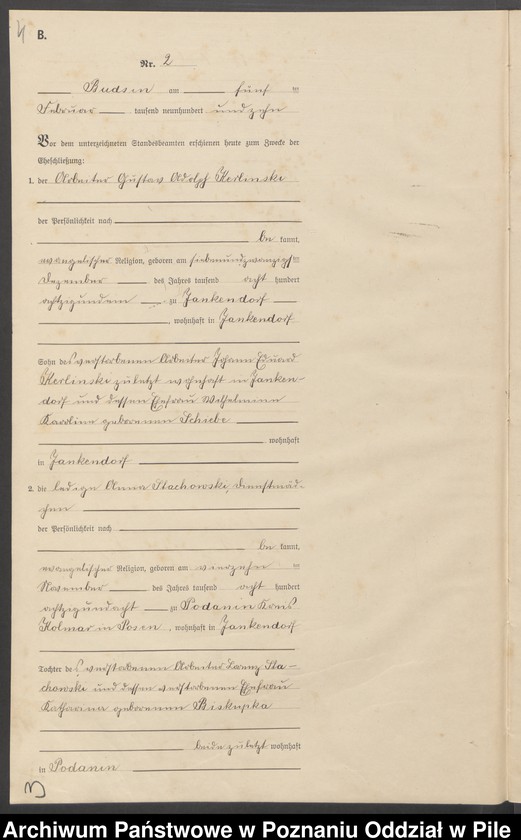 4
B.
Nr. 2
Budsin am fünf ten
Februar tausend neunhundert undzehn
Vor dem unterzeichneten Standesbeamten erschienen heute zum Zwecke der
Eheschließung:
1. der Arbeiter Gustav Adolph Kerlinski
der Persönlichkeit nach
be kannt,
evangelischer Religion, geboren am siebenundzwanzigsten
Dezember des Jahres tausend acht hundert
achtzigund zu Jankendorf
, wohnhaft in Jankendorf
Sohn des verstorbenen Arbeiter Johann Eduard
Kerlinski zuletzt wohnhaft in Janken-
dorf und dessen Ehefrau Wilhelmine
Karoline geborenen Schiebe
wohnhaft
in Jankendorf
2. die ledige Anna Stachowski, Dienstmäd-
chen
der Persönlichkeit nach
be kannt,
evangelischer Religion, geboren am vierzehn ten
November des Jahres tausend acht hundert
achtzigundacht zu Podanin Kreis
Kolmar in Posen, wohnhaft in Jankendorf
Tochter des verstorbenen Arbeiter Lorenz Sta-
chowski und dessen verstorbenen Ehefrau
Katharina geborenen Biskupka
beide zuletzt wohnhaft
in Podanin
Archiwum Państwowe w Poznaniu Oddział w Pile